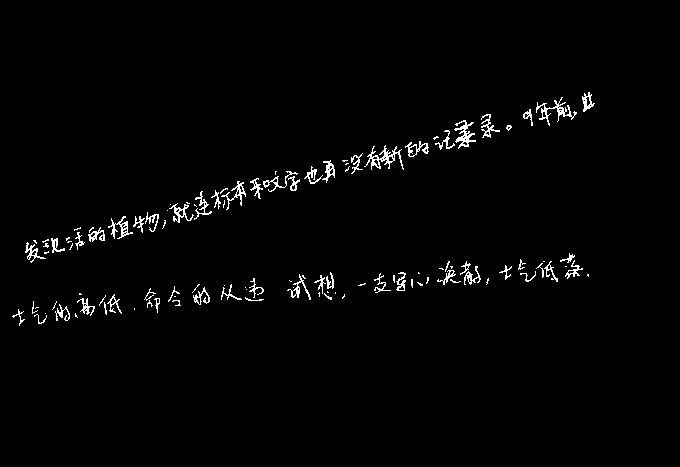 发现活的植物,就连标本和文字也再没有新的记录录。9年前,世
士气的高低.命令的从违 试想,一支军心涣散,士气低落.